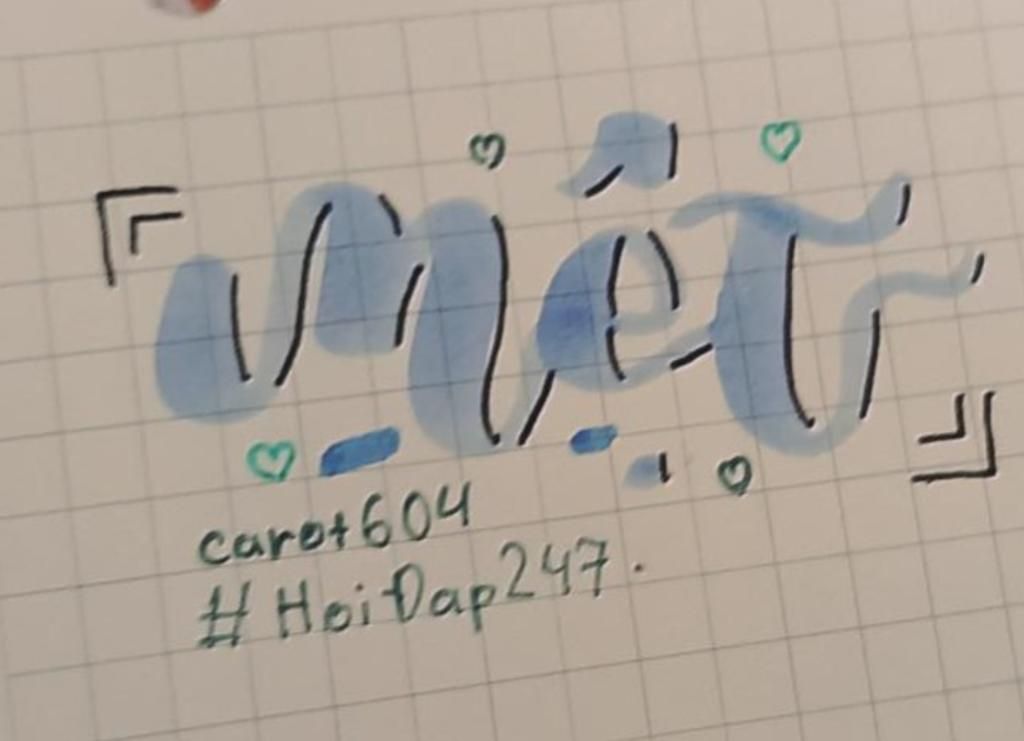 『mệt』
carot604
#HoiĐap247.